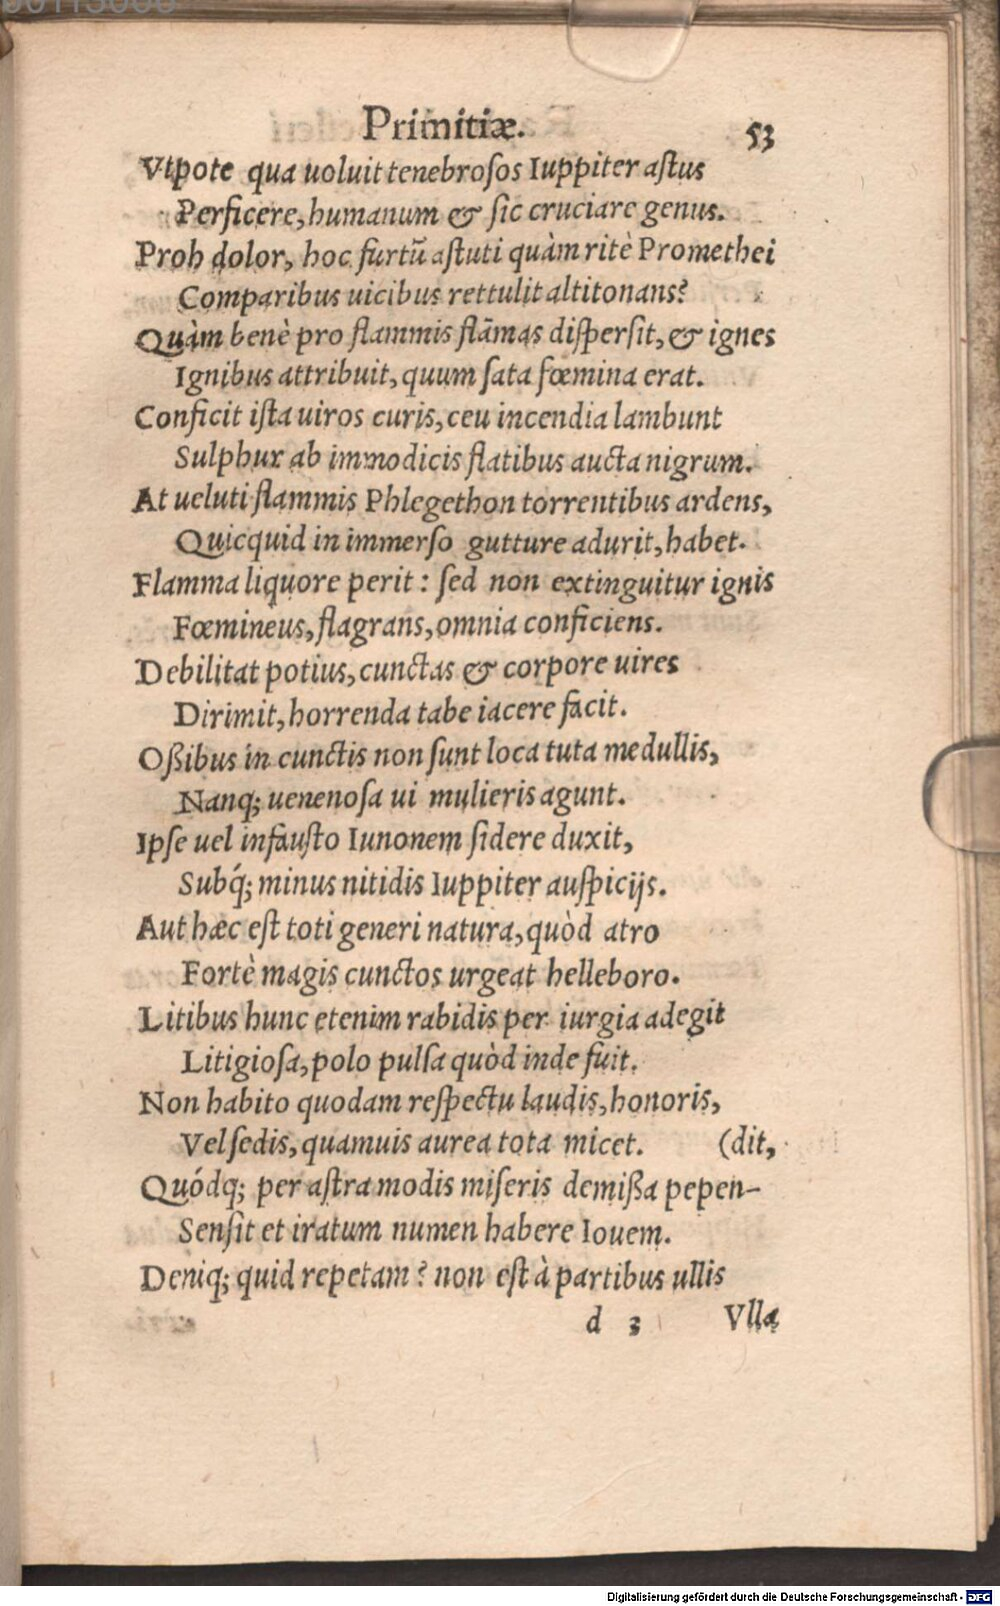 Primitiæ. 53
Vtpote qua uoluit tenebroſos Iuppiter aſtus
Perficere, humanum & ſic cruciare genus.
Proh dolor, hoc furtū aſtuti quàm ritè Promethei
Comparibus uicibus rettulit altitonans?
Quàm benè pro flammis flāmas diſperſit, & ignes
Ignibus attribuit, quum ſata fœmina erat.
Conficit iſta uiros curis, ceu incendia lambunt
Sulphur ab immodicis flatibus aucta nigrum.
At ueluti flammis Phlegethon torrentibus ardens,
Quicquid in immerſo gutture adurit, habet.
Flamma liquore perit: ſed non extinguitur ignis
Fœmineus, flagrans, omnia conficiens.
Debilitat potius, cunctas & corpore uires
Dirimit, horrenda tabe iacere facit.
Oßibus in cunctis non ſunt loca tuta medullis,
Nanq; uenenoſa ui mulieris agunt.
Ipſe uel infauſto Iunonem ſidere duxit,
Subq́; minus nitidis Iuppiter auſpicijs.
Aut hæc eſt toti generi natura, quòd atro
Fortè magis cunctos urgeat helleboro.
Litibus hunc etenim rabidis per iurgia adegit
Litigioſa, polo pulſa quòd inde fuit.
Non habito quodam reſpectu laudis, honoris,
Vel ſedis, quamuis aurea tota micet. (dit,
Quódq; per aſtra modis miſeris demißa pepen-
Senſit et iratum numen habere Iouem.
Deniq; quid repetam? non eſt à partibus ullis
d 3 Vlla
Digitalisierung gefördert durch die Deutsche Forschungsgemeinschaft - DFG